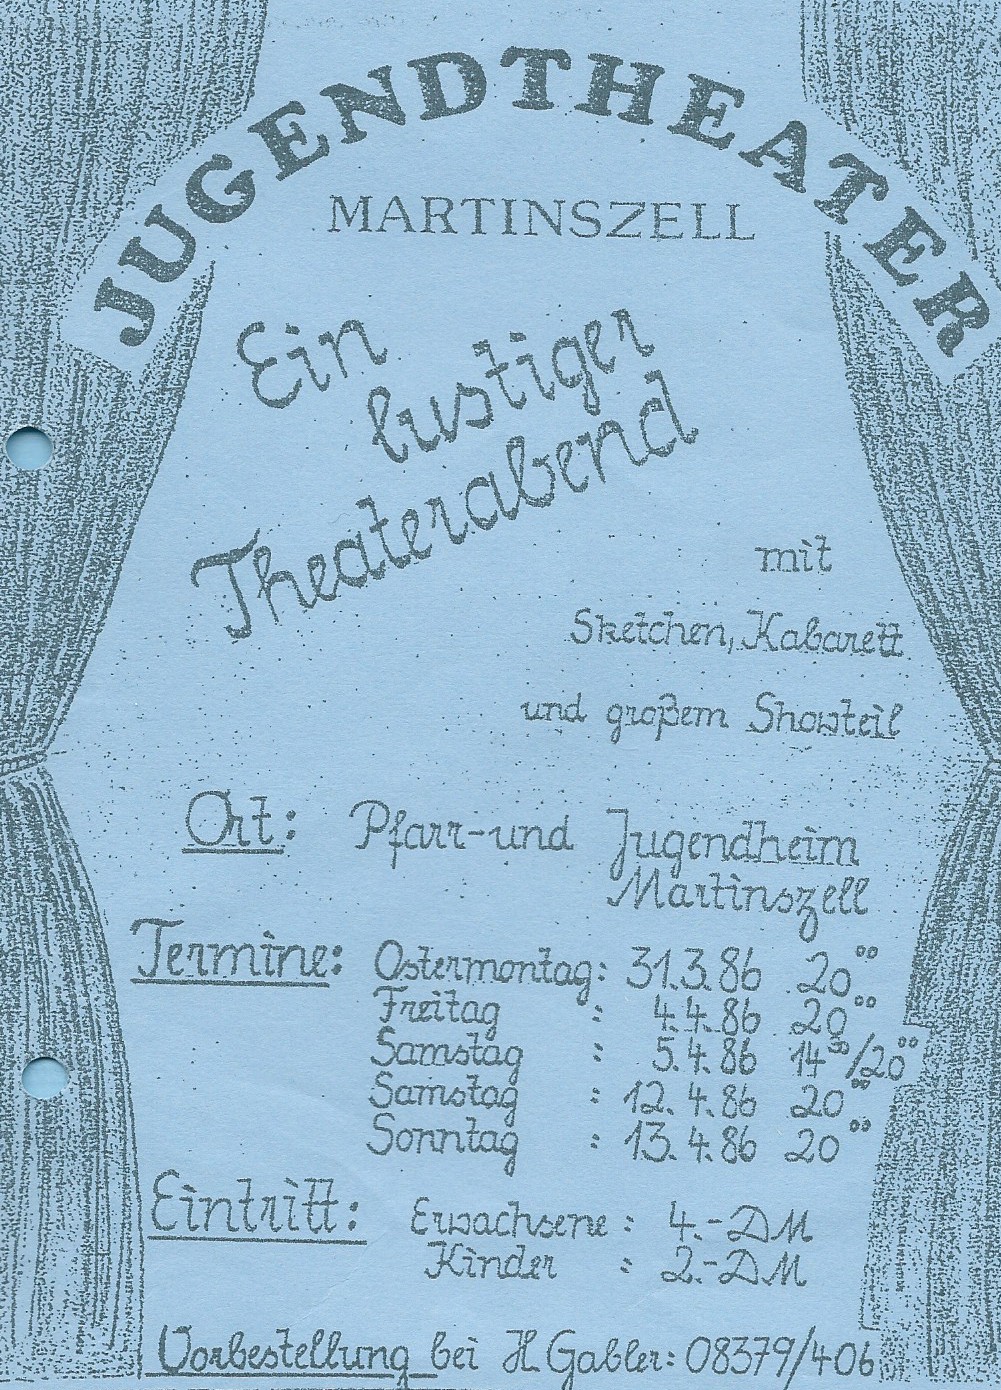 JUGENDTHEATER
MARTINSZELL
Ein
lustiger
Theaterabend
mit
Sketchen, Kabarett
und großem Showteil
Ort: Pfarr-und Jugendheim
Martinszell
Termine: Ostermontag: 31.3.86 20⁰⁰
Freitag : 4.4.86 20⁰⁰
Samstag : 5.4.86 14³⁰/20⁰⁰
Samstag : 12.4.86 20⁰⁰
Sonntag : 13.4.86 20⁰⁰
Eintritt: Erwachsene : 4.-DM
Kinder : 2.-DM
Vorbestellung bei H Gabler: 08379/406